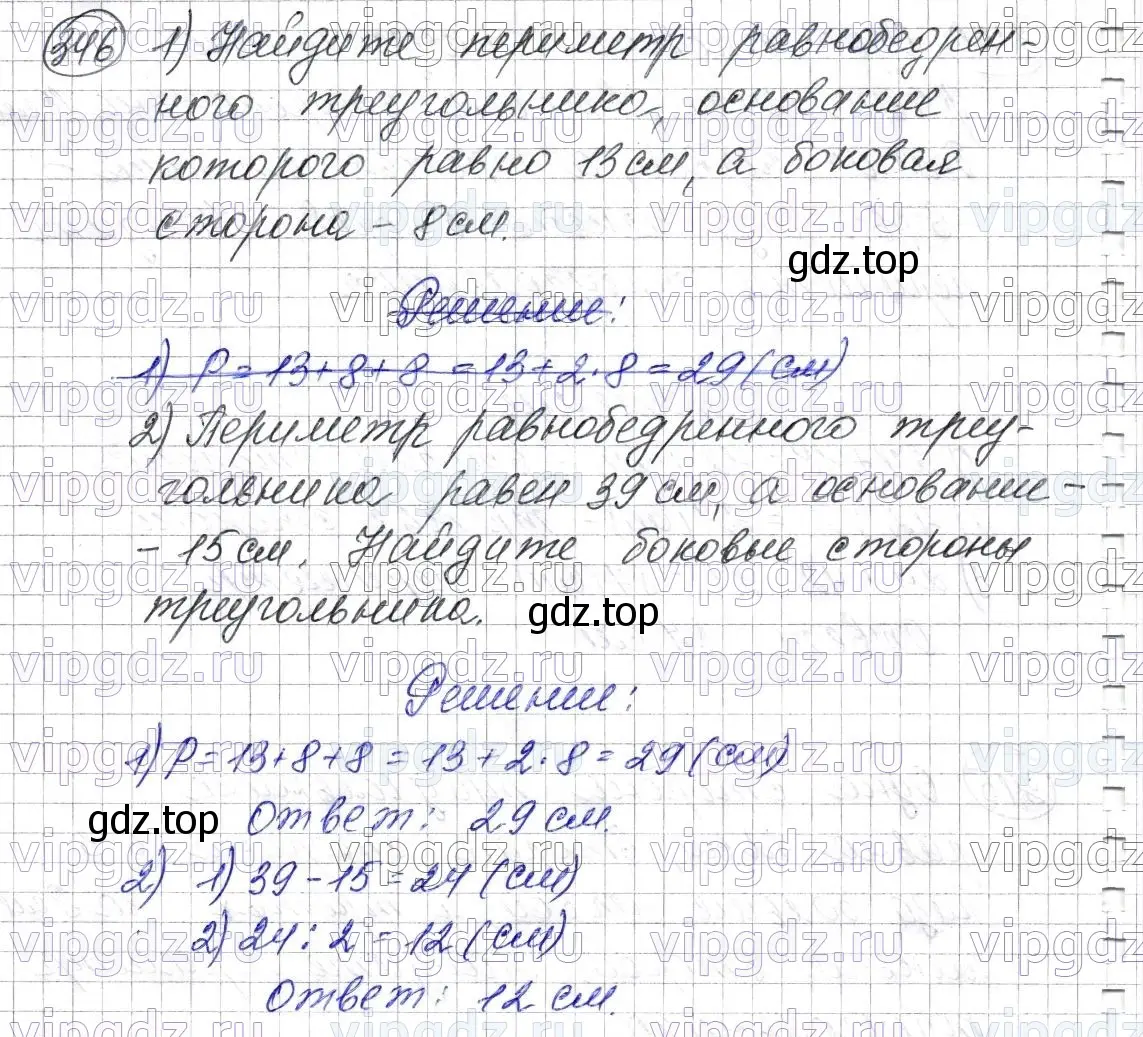 346 1) Найдите периметр равнобедрен-
ного треугольника, основание
которого равно 13 см, а боковая
сторона – 8 см.
gdz.top
Решение:
1) P = 13 + 8 + 8 = 13 + 2 · 8 = 29 (см)
2) Периметр равнобедренного треу-
гольника равен 39 см, а основание -
- 15 см. Найдите боковые стороны
треугольника.
gdz.top
Решение:
1) P = 13 + 8 + 8 = 13 + 2 · 8 = 29 (см)
gdz.top
Ответ: 29 см.
2) 1) 39 - 15 = 24 (см)
2) 24 : 2 = 12 (см)
Ответ: 12 см.
vipgdz.ru